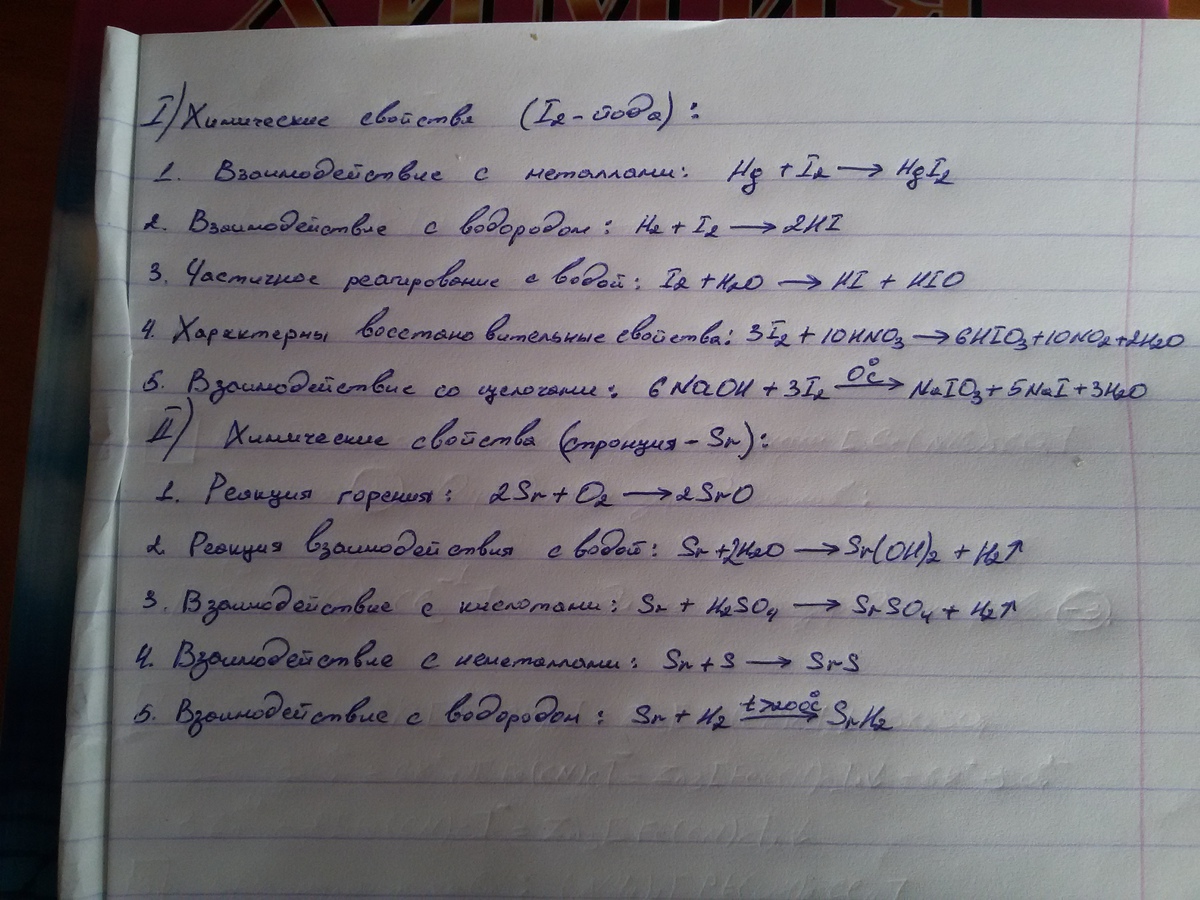 ХИМИЯ
I) Химические свойства (I₂ - йода):
1. Взаимодействие с металлами: Hg + I₂ → HgI₂
2. Взаимодействие с водородом: H₂ + I₂ → 2HI
3. Частичное реагирование с водой: I₂ + H₂O → HI + HIO
4. Характерны восстановительные свойства: 3I₂ + 10HNO₃ → 6HIO₃ + 10NO₂ + 2H₂O
5. Взаимодействие со щелочами: 6NaOH + 3I₂ 0°C→ NaIO₃ + 5NaI + 3H₂O
II) Химические свойства (стронция - Sr):
1. Реакция горения: 2Sr + O₂ → 2SrO
2. Реакция взаимодействия с водой: Sr + 2H₂O → Sr(OH)₂ + H₂↑
3. Взаимодействие с кислотами: Sr + H₂SO₄ → SrSO₄ + H₂↑
4. Взаимодействие с неметаллами: Sr + S → SrS
5. Взаимодействие с водородом: Sr + H₂ t>200°C→ SrH₂